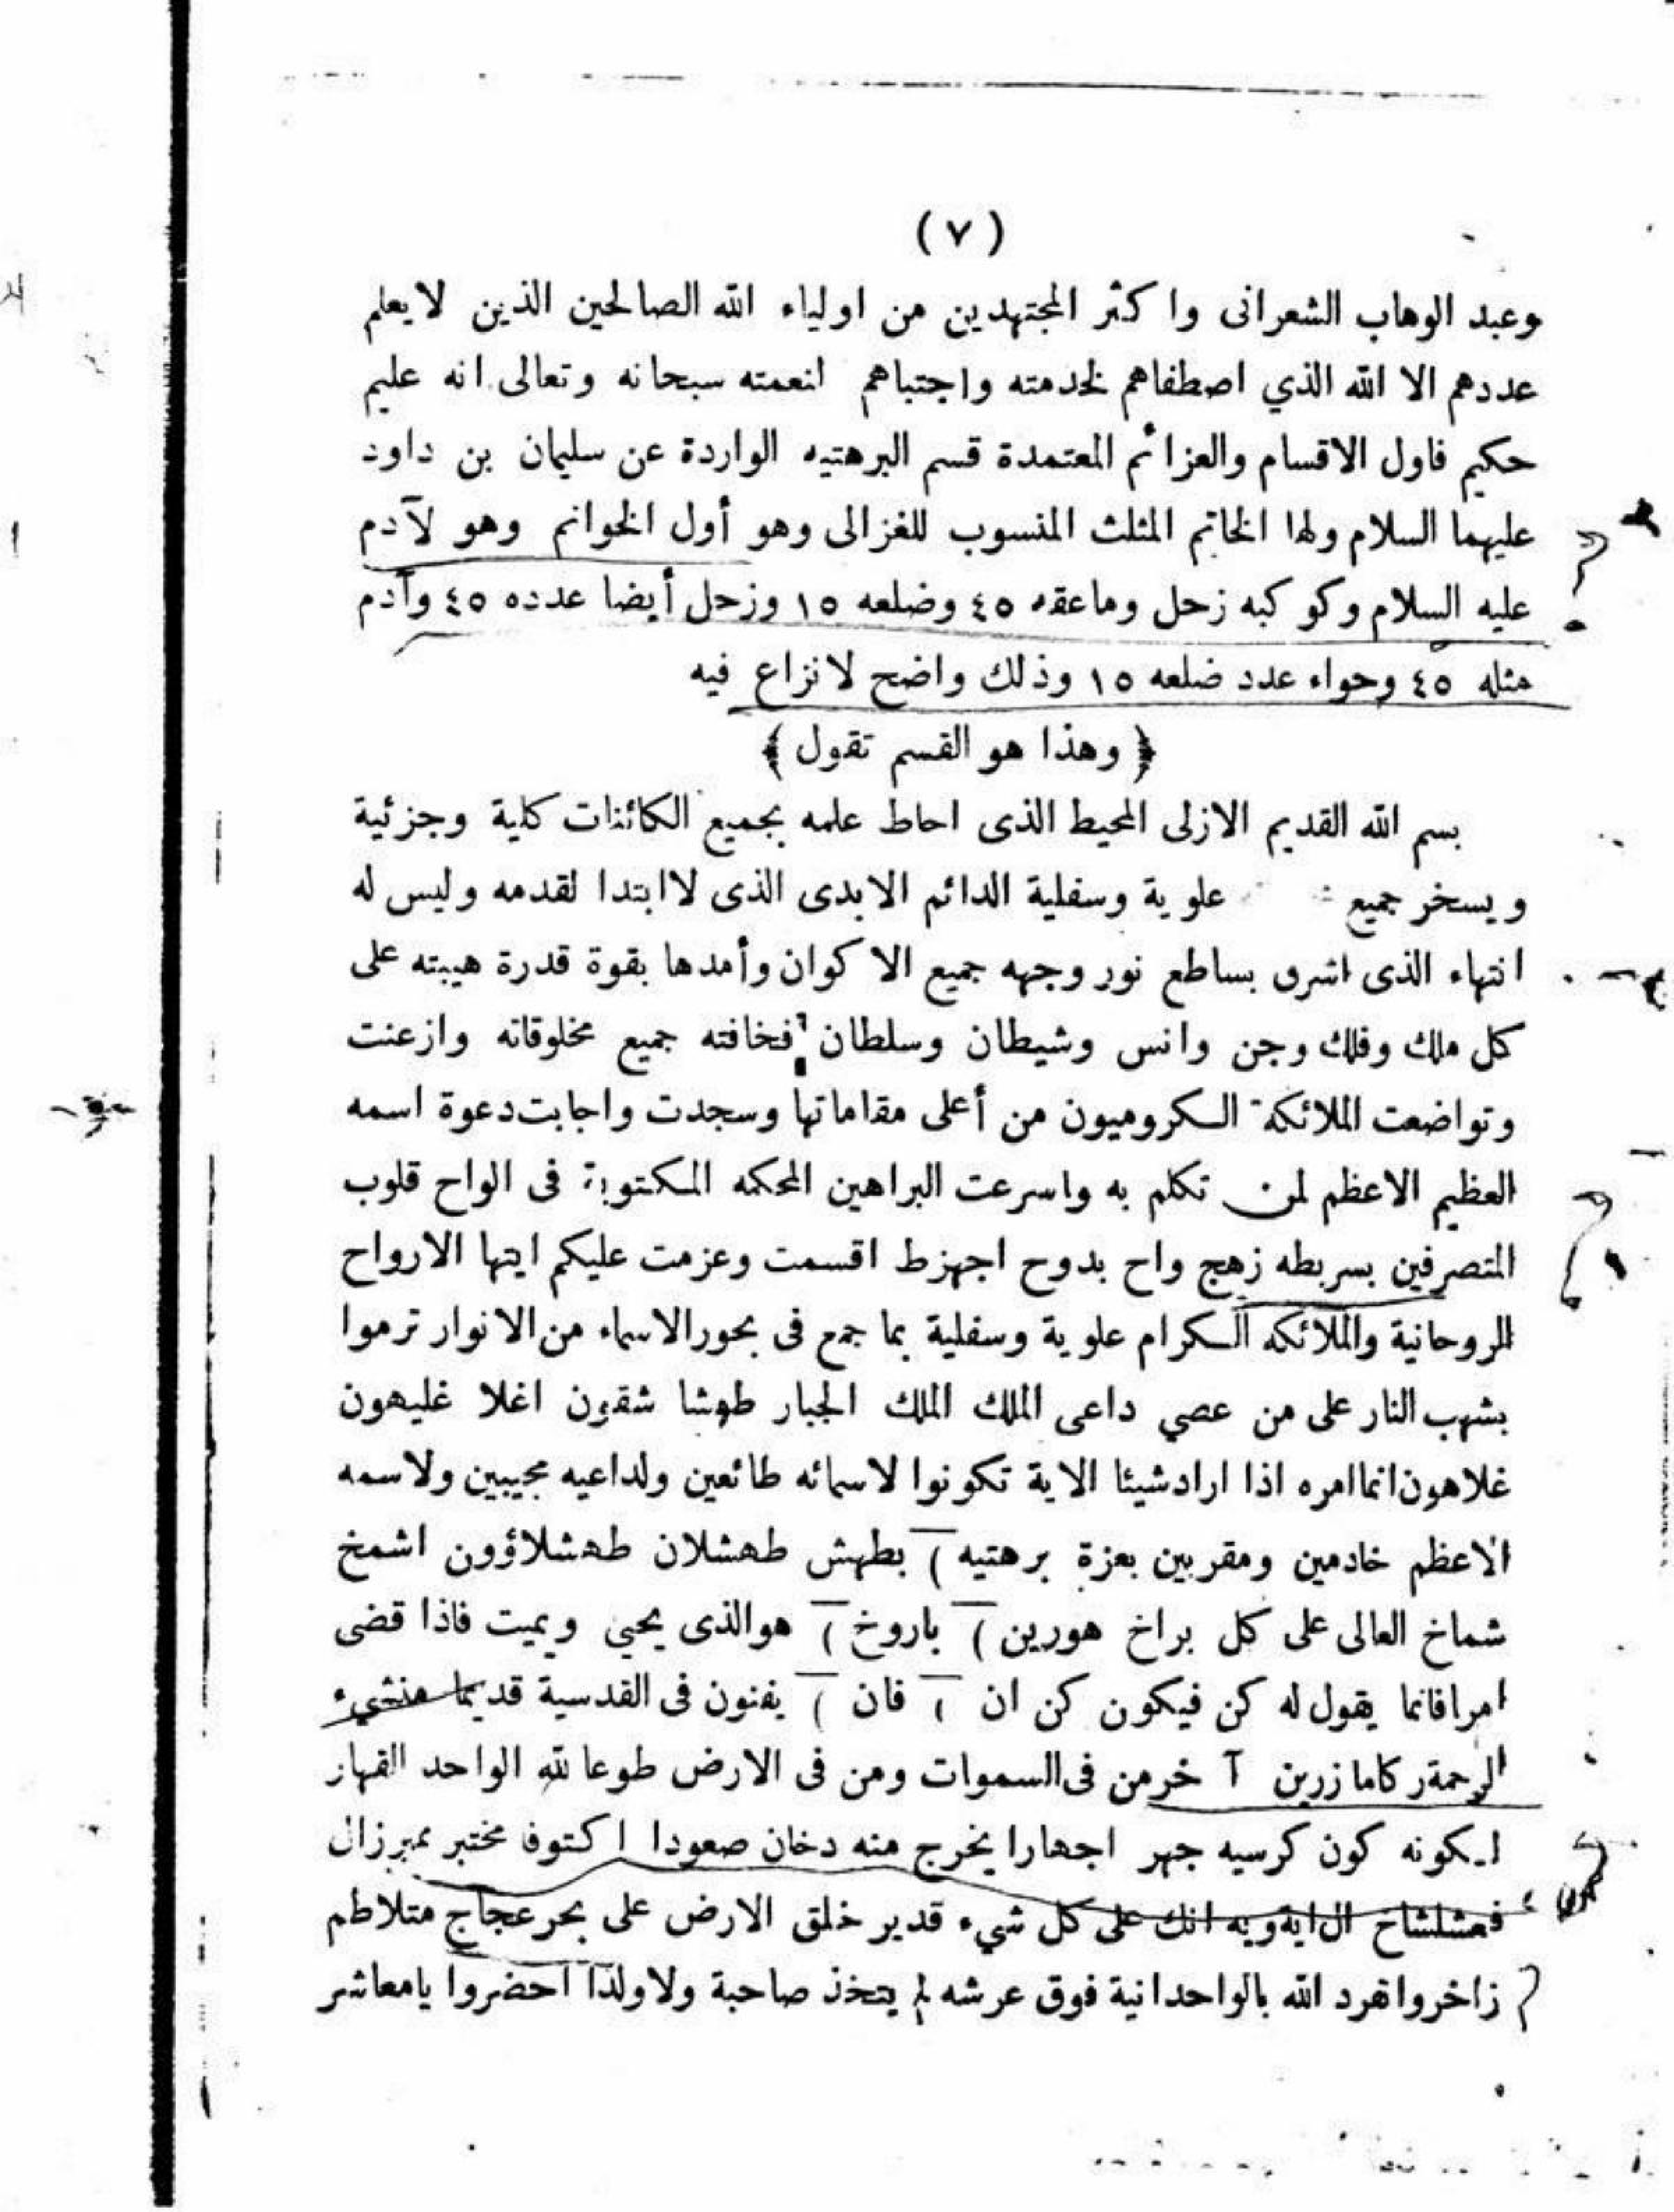 (٧)
وعبد الوهاب الشعرانى واكثر المجتهدين من اولياء الله الصالحين الذين لايعلم
عددهم الا الله الذي اصطفاهم لخدمته واجتباهم لنعمته سبحانه وتعالى انه عليم
حكيم فاول الاقسام والعزائم المعتمدة قسم البرهتيه الواردة عن سليمان بن داود
عليهما السلام ولها الخاتم المثلث المنسوب للغزالى وهو أول الخواتم وهو لآدم
عليه السلام وكوكبه زحل وماعقه ٤٥ وضلعه ١٥ وزحل أيضا عدده ٤٥ وآدم
مثله ٤٥ وحواء عدد ضلعه ١٥ وذلك واضح لانزاع فيه
﴿ وهذا هو القسم تقول ﴾
بسم الله القديم الازلى المحيط الذى احاط علمه بجميع الكائنات كلية وجزئية
ويسخر جميع علوية وسفلية الدائم الابدى الذى لاابتدا لقدمه وليس له
انتهاء الذى اشرق بساطع نور وجهه جميع الاكوان وأمدها بقوة قدرة هيبته على
كل ملك وفلك وجن وانس وشيطان وسلطان فخافته جميع مخلوقاته وازعنت
وتواضعت الملائكة الكروميون من أعلى مقاماتها وسجدت واجابت دعوة اسمه
العظيم الاعظم لمن تكلم به واسرعت البراهين المحكمه المكتوبة فى الواح قلوب
المتصرفين بسر بطه زهج واح بدوح اجهزط اقسمت وعزمت عليكم ايتها الارواح
الروحانية والملائكه الكرام علوية وسفلية بما جمع فى بحور الاسماء من الانوار ترموا
بشهب النار على من عصي داعى الملك الملك الجبار طوشا شقون اغلا غليهون
غلاهون انما امره اذا اراد شيئا الاية تكونوا لاسمائه طائعين ولداعيه مجيبين ولاسمه
الاعظم خادمين ومقربين بعزة برهتيه ٢ بطهش طهشلان طهشلاؤون اشمخ
شماخ العالى على كل براخ هورين ٢ باروخ ٢ هو الذى يحيي ويميت فاذا قضى
امرا فانما يقول له كن فيكون كن ان ٢ فان ٢ يفنون فى القدسية قديما منشيء
الرحمة ركاما زرين آخر من فى السموات ومن فى الارض طوعا لله الواحد القهار
ايكونه كون كرسيه جهر اجهارا يخرج منه دخان صعودا اكتوفا مختبر
فعشلشاخ انك على كل شيء قدير خلق الارض على بحر عجاج متلاطم
زاخر وانفرد الله بالواحدانية فوق عرشه لم يتخذ صاحبة ولاولدا احضروا يامعاشر